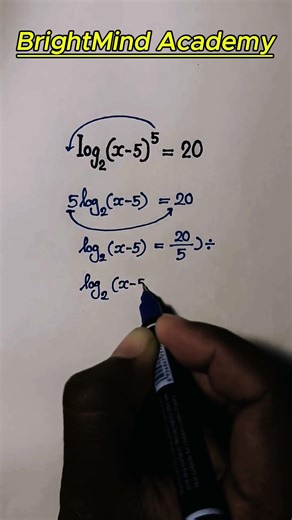 BrightMind Academy
log₂(x-5)⁵ = 20
5log₂(x-5) = 20
log₂(x-5) = 20/5 )÷
log₂(x-5